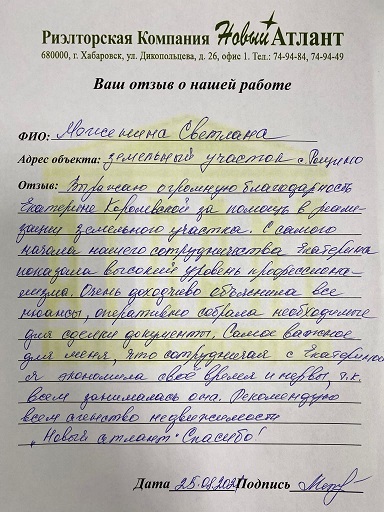 Риэлторская Компания Новый Атлант
680000, г. Хабаровск, ул. Дикопольцева, д. 26, офис 1. Тел.: 74-94-84, 74-94-49
Ваш отзыв о нашей работе
ФИО: Светлана
Адрес объекта: земельный участок с.
Отзыв: Выражаю огромную благодарность
Екатерине Королевской за помощь в реали-
зации земельного участка. С самого
начала нашего сотрудничества Екатерина
показала высокий уровень профессиона-
лизма. Очень доходчиво объяснила все
нюансы, оперативно собрала необходимые
для сделки документы. Самое важное
для меня, что сотрудничая с Екатериной
я экономила своё время и нервы, т.к.
всем занималась она. Рекомендую
всем агенство недвижимости
„Новый атлант". Спасибо!
Дата 25.08.2021 Подпись